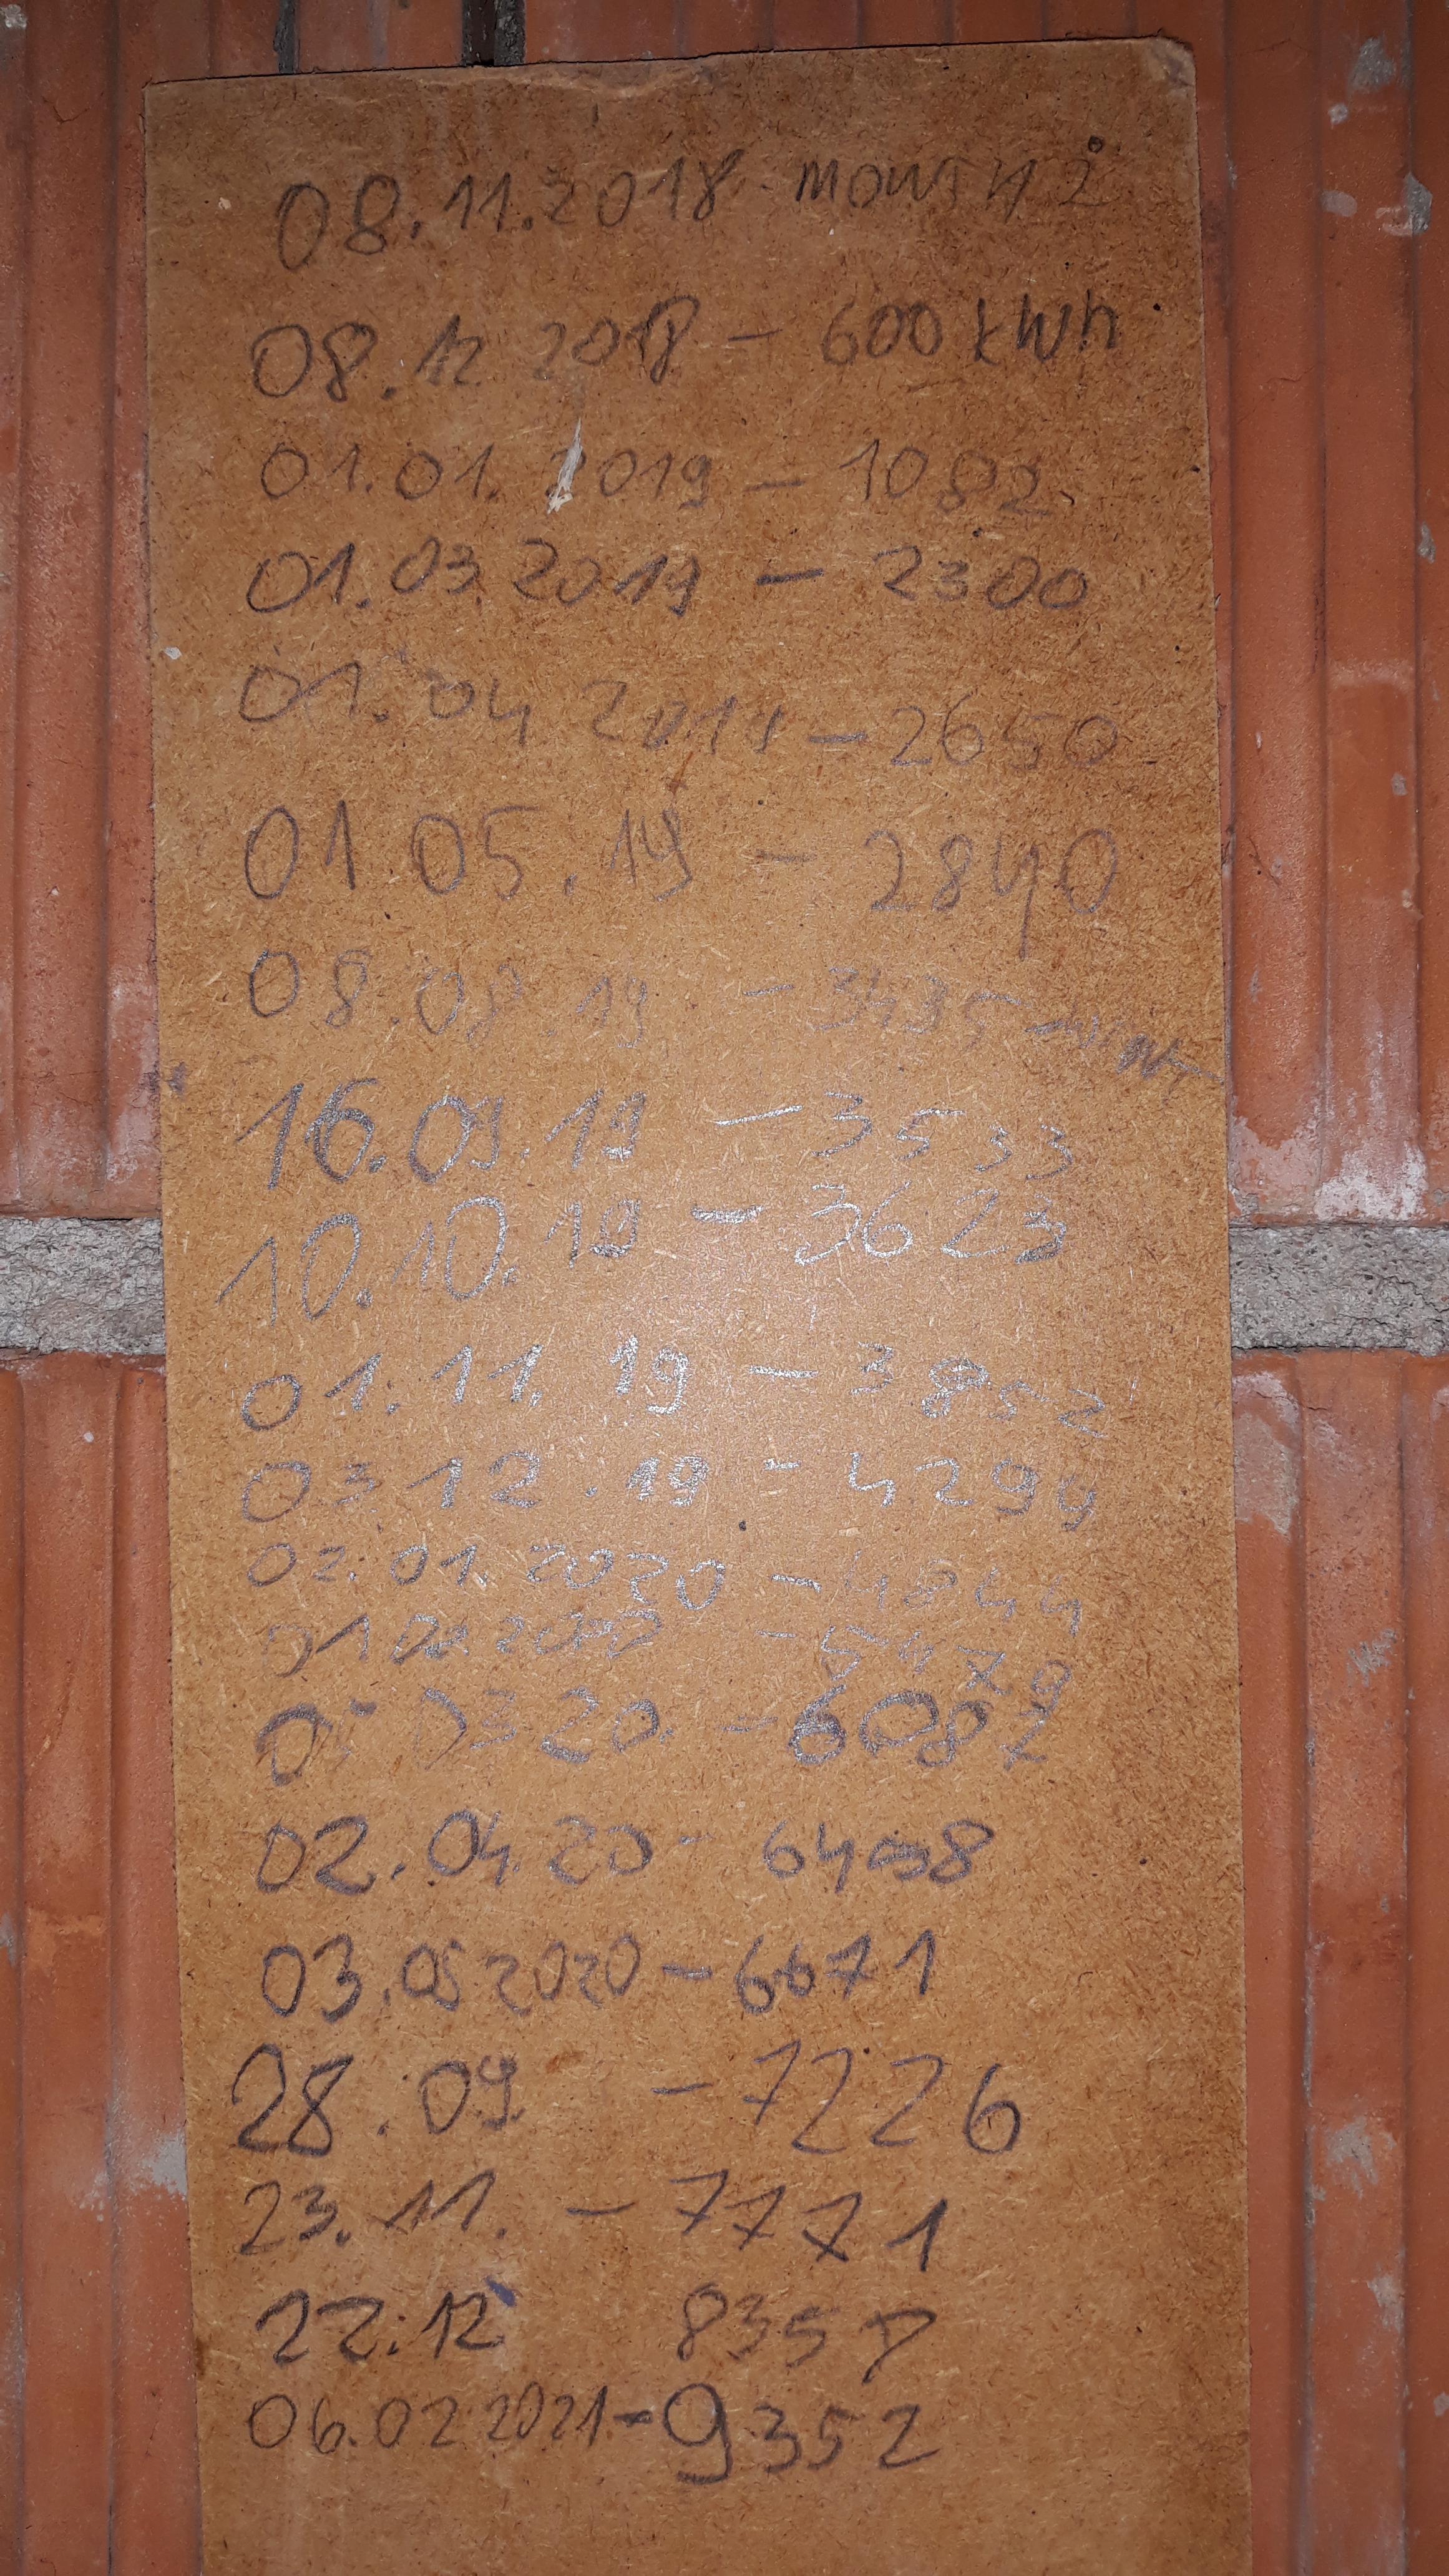 08.11.2018 - montaż
08.12 2018 - 600 kWh
01.01.2019 - 1082
01.03.2019 - 2300
01.04 2019 - 2650
01.05.19 - 2840
08.08.19 - 3435 -
16.09.19 - 3533
10.10.19 - 3623
01.11.19 - 3852
03.12.19 - 4299
02.01.2020 - 4844
- 5479
03.20. - 6087
02.04.20 - 6408
03.05 2020 - 6671
28.09. - 7226
23.11. - 7771
22.12 8357
06.02 2021 - 9352